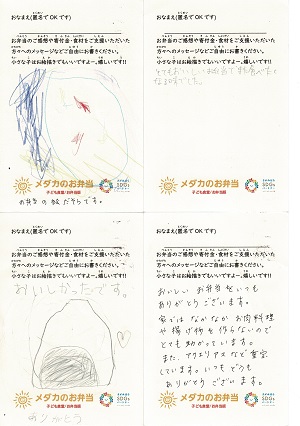 おなまえ(匿名でOKです)
お弁当のご感想や寄付金・食材をご支援いただいた
方々へのメッセージなどご自由にお書きください。
小さな子はお絵描きでもいいですよ~、嬉しいです!!
メダカのお弁当
子ども食堂/お弁当版
お弁当の絵だそうです。
おなまえ(匿名でOKです)
お弁当のご感想や寄付金・食材をご支援いただいた
方々へのメッセージなどご自由にお書きください。
小さな子はお絵描きでもいいですよ~、嬉しいです!!
とてもおいしいお弁当でまた食べたく
なりました。
メダカのお弁当
子ども食堂/お弁当版
おなまえ(匿名でOKです)
お弁当のご感想や寄付金・食材をご支援いただいた
方々へのメッセージなどご自由にお書きください。
小さな子はお絵描きでもいいですよ~、嬉しいです!!
おいしかったです。
メダカのお弁当
子ども食堂/お弁当版
ありがとう
おなまえ(匿名でOKです)
お弁当のご感想や寄付金・食材をご支援いただいた
方々へのメッセージなどご自由にお書きください。
小さな子はお絵描きでもいいですよ~、嬉しいです!!
おいしいお弁当をいつも
ありがとうございます。
家ではなかなかお肉料理
や揚げ物を作らないので
とても助かっています。
また、アクエリアスなど重宝
しています。いつもどうも
ありがとうございます。
メダカのお弁当
子ども食堂/お弁当版